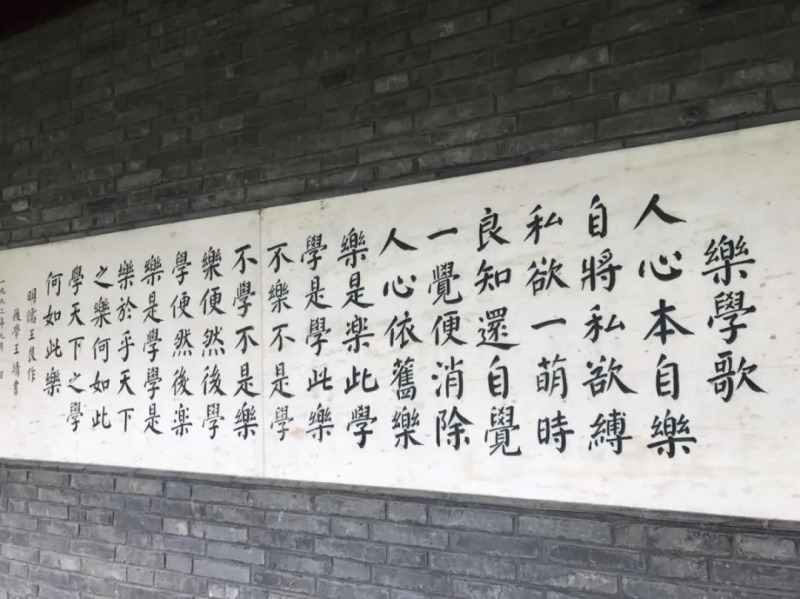 樂學歌
人心本自樂
自將私欲縛
私欲一萌時
良知還自覺
一覺便消除
人心依舊樂
樂是楽此學
學是學此樂
不樂不是學
不學不是樂
樂便然後學
學便然後楽
樂是學學是
樂於乎天下
之樂何如此
學天下之學
何如此樂
明儒王艮作
後學王靖書